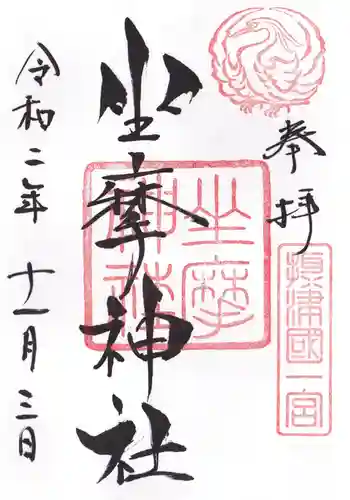 奉拝
摂津國一宮
坐摩神社
坐摩神社
令和二年 十一月三日